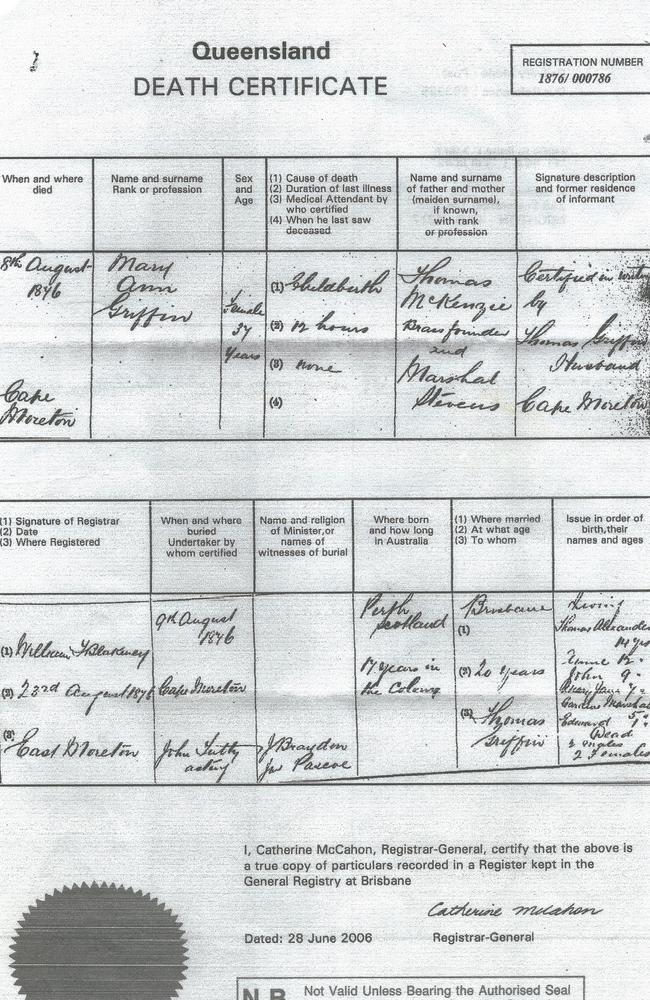 Queensland
DEATH CERTIFICATE
REGISTRATION NUMBER
1876/000786
When and where
died
Name and surname
Rank or profession
Sex
and
Age
(1) Cause of death
(2) Duration of last illness
(3) Medical Attendant by
who certified
(4) When he last saw
deceased
Name and surname
of father and mother
(maiden surname),
if known,
with rank
or profession
Signature description
and former residence
of informant
8th August
1876
Cape
Moreton
Mary
Ann
Griffin
Female
37
years
(1) Childbirth
(2) 12 hours
(3) none
(4)
Thomas
McKenzie
Brassfounder
and
Marshal
Stevens
Certified in
by
Thomas Griffin
Husband
Cape Moreton
(1) Signature of Registrar
(2) Date
(3) Where Registered
When and where
buried
Undertaker by
whom certified
Name and religion
of Minister, or
names of
witnesses of burial
Where born
and how long
in Australia
(1) Where married
(2) At what age
(3) To whom
Issue in order of
birth, their
names and ages
(1) William Blakeney
(2) 23rd August 1876
(3)
East Moreton
9th August
1876
Cape Moreton
John
acting
J Braydon
Pascoe
Perth
Scotland
17 years in
the Colony
Brisbane
(1)
(2) 20 years
(3) Thomas
Griffin
Living
Thomas Alexander
14 yrs
12 "
John 9 "
Mary Jane 7 "
Caroline Marshal
5 "
Edward 1 "
Dead
males
2 Females
I, Catherine McCahon, Registrar-General, certify that the above is
a true copy of particulars recorded in a Register kept in the
General Registry at Brisbane
Catherine McCahon
Dated: 28 June 2006
Registrar-General
N.B.
Not Valid Unless Bearing the Authorised Seal